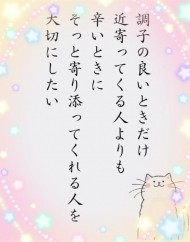 調子の良いときだけ
近寄ってくる人よりも
辛いときに
そっと寄り添ってくれる人を
大切にしたい